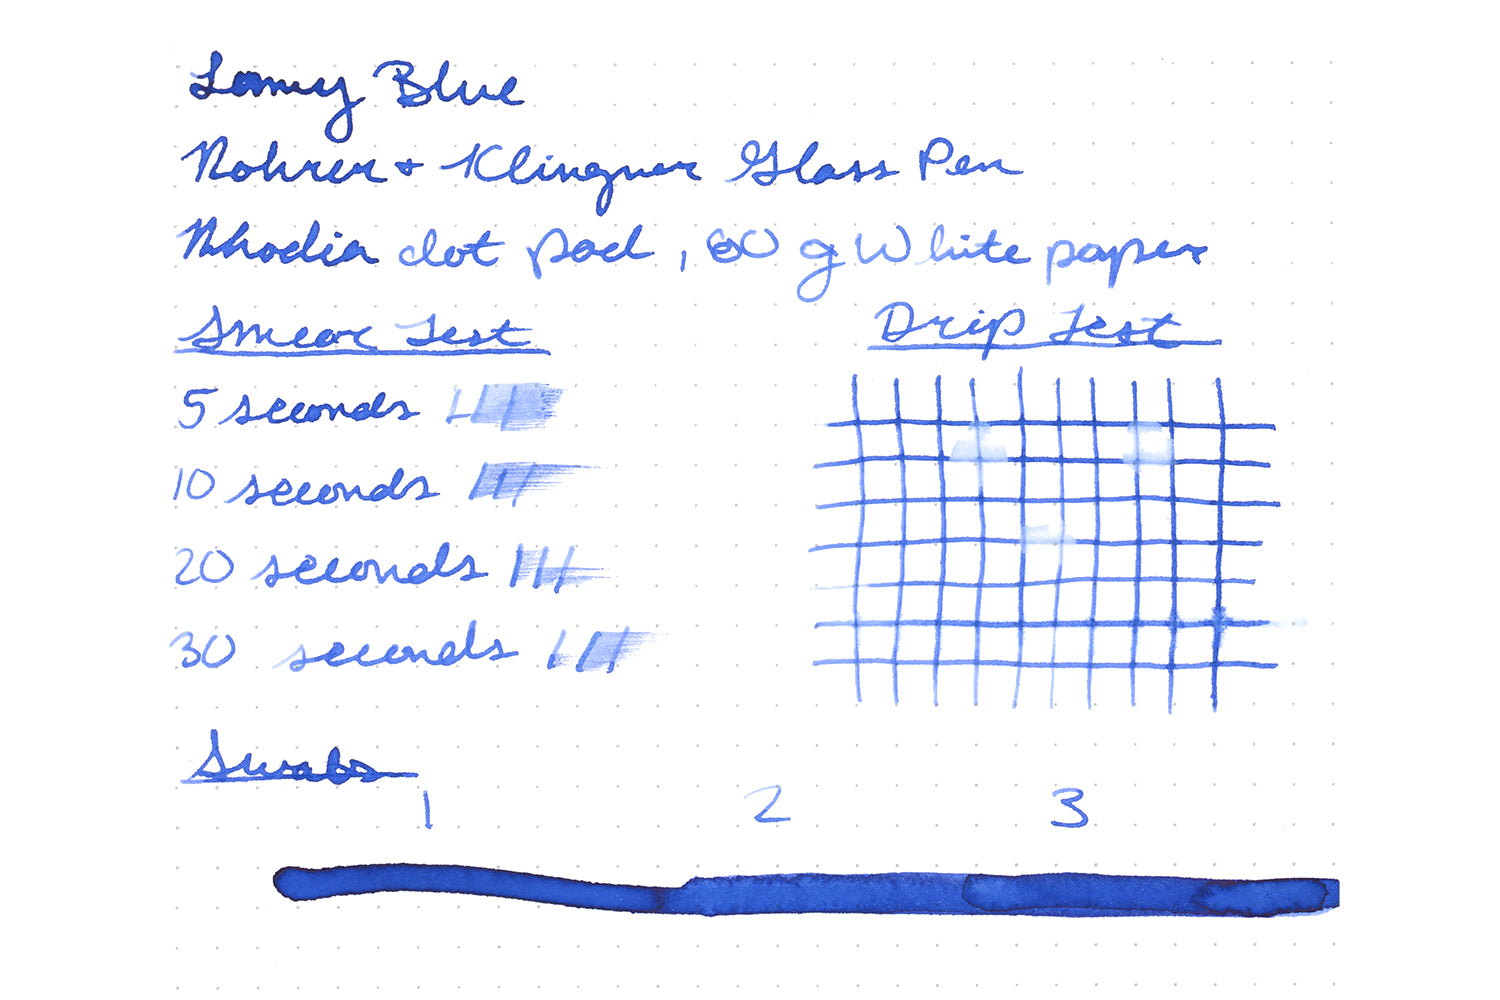 Lamy Blue
Rohrer + Klingner Glass Pen
Rhodia dot pad, 80 g White paper
Smear Test
Drip Test
5 seconds
10 seconds
20 seconds
30 seconds
Swabs
1 2 3